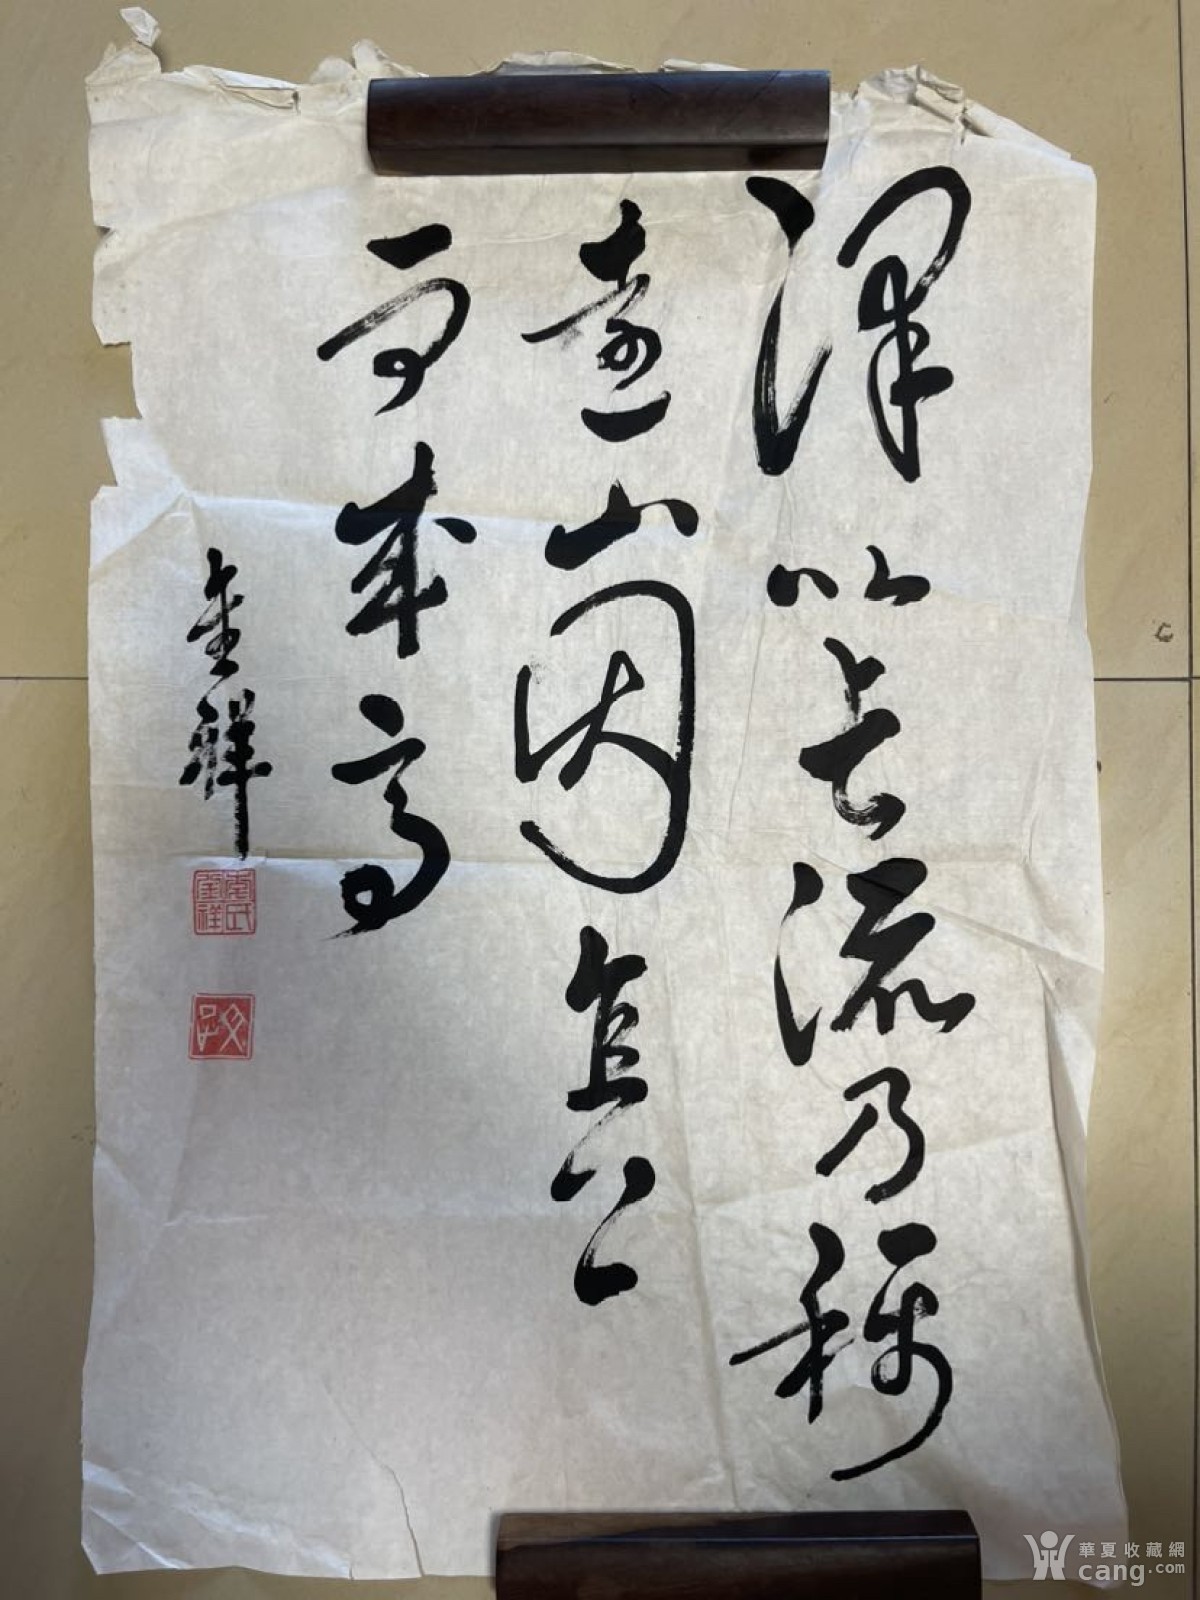 澤以長流乃稱
遠山因直上
而成高
金祥
華夏收藏網
cang.com